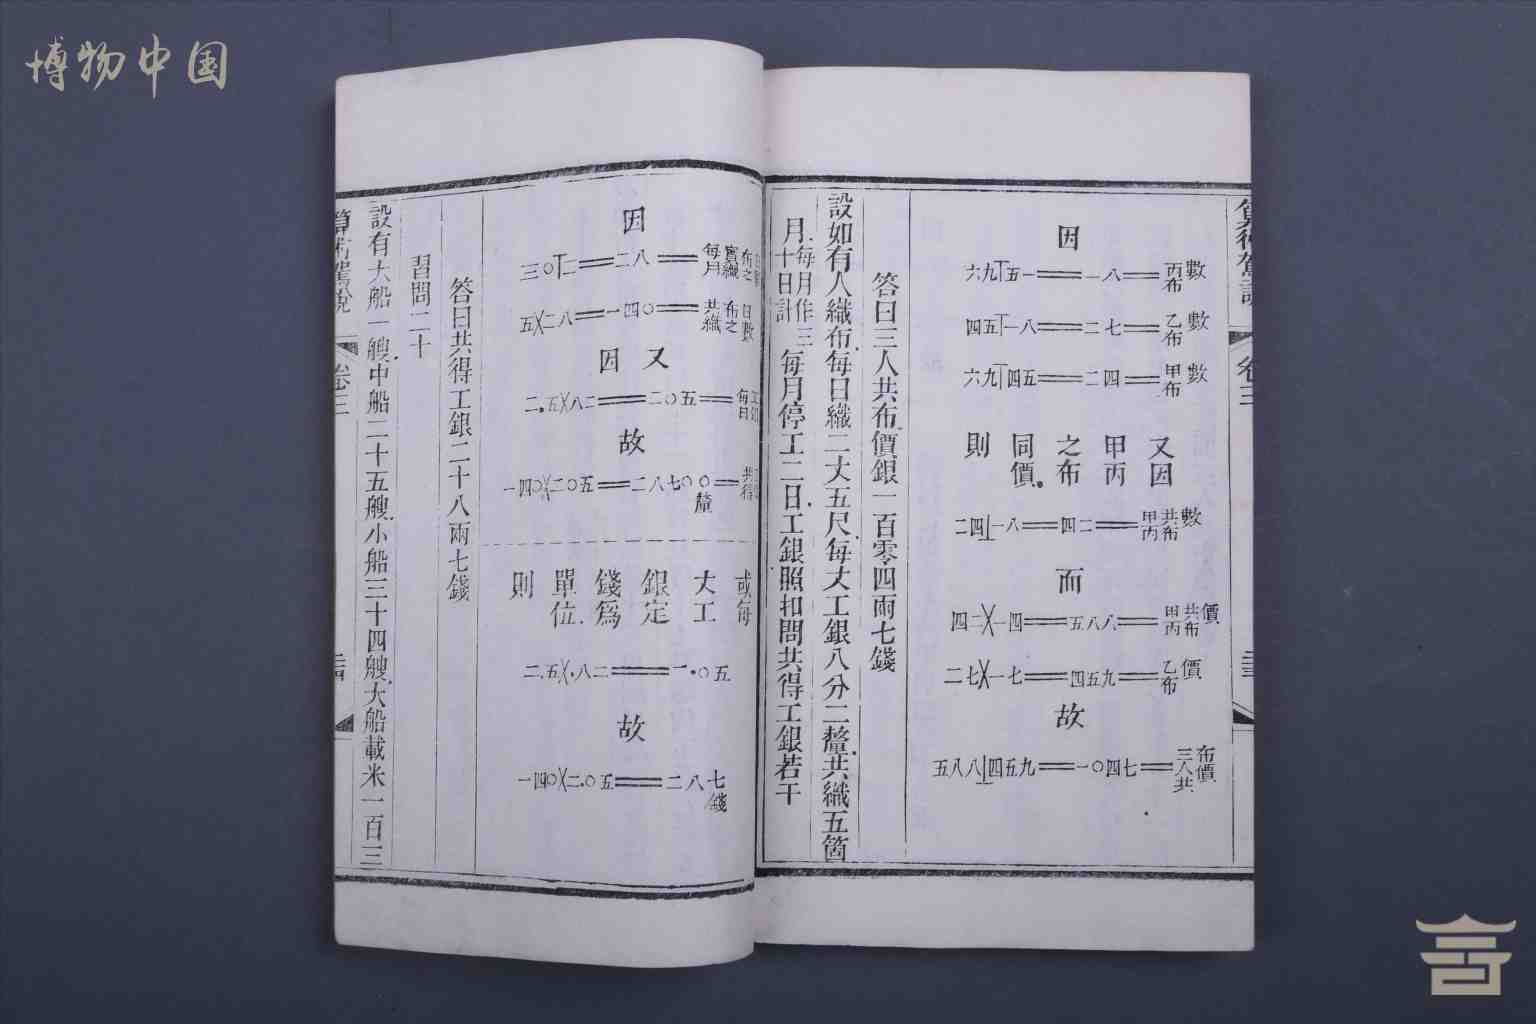 算術駕說 卷三
因
六九丅五一══一八══丙布數
四五丅一八══二七══乙布數
六九丅四五══二四══甲布數
又因甲丙之布同價則
二四⊥一八══四二══甲丙共布數
而
四二╳一四══五八八══甲丙共布價
二七╳一七══四五九══乙布價
故
五八八⊥四五九══一〇四七══三人共布價
答曰三人共布價銀一百零四兩七錢
設如有人織布每日織二丈五尺每丈工銀八分二釐共織五箇
月每月作三十日計每月停工二日工銀照扣問共得工銀若干
因
三〇丅二══二八══每月實織布之
五╳二八══一四〇══共織布之日數
又因
二.五╳八二══二〇五══每日
故
一四〇╳二〇五══二八七〇〇釐══共得
或每丈工銀定錢爲單位則
二.五╳.八二══二.〇五
故
一四〇╳二.〇五══二八七錢
答曰共得工銀二十八兩七錢
習問二十
設有大船一艘中船二十五艘小船三十四艘大船載米一百三
算術駕說 卷三
博物中国